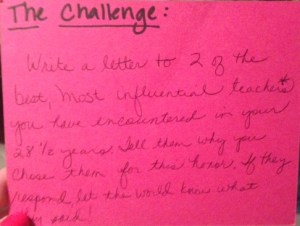 The Challenge:
Write a letter to 2 of the
best, most influential teachers*
you have encountered in your
28 1/2 years. Tell them why you
chose them for this honor. If they
respond, let the world know what
they said!